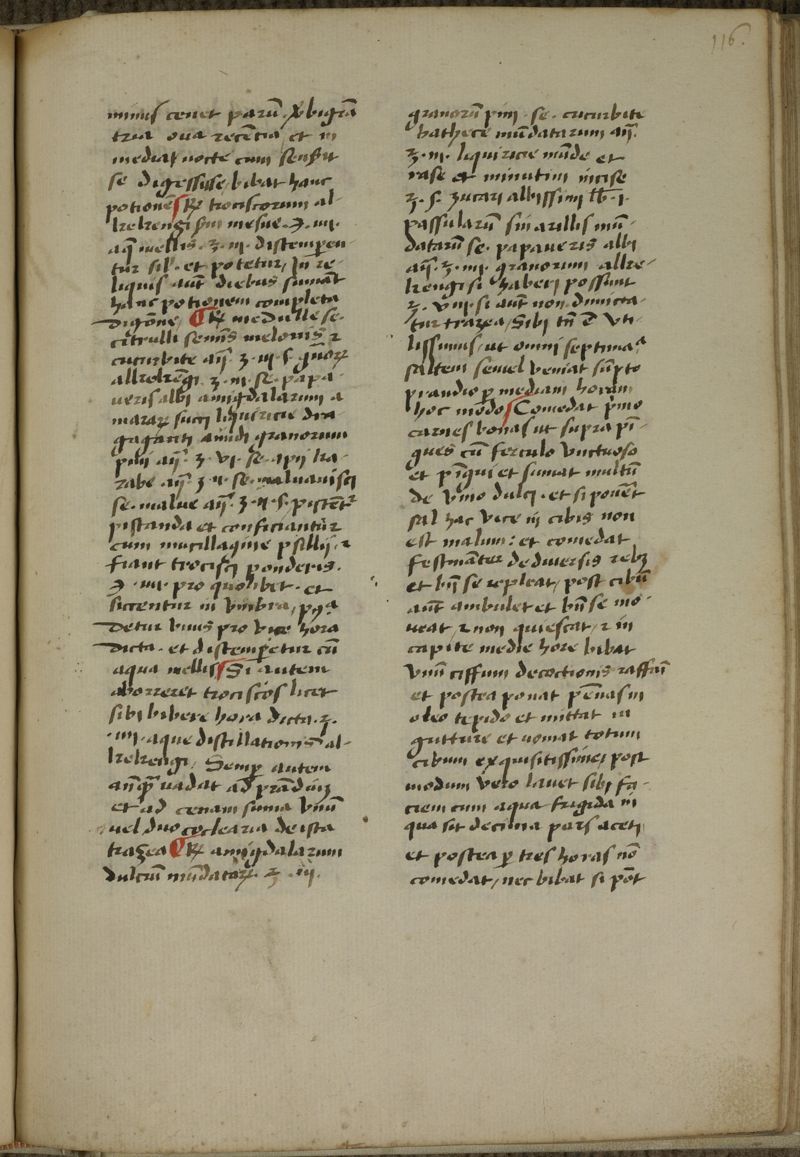 116.
minus cenet parū
tria oua recētia et in
media nocte cum senserit
se digessisse bibat hanc
potionē ℞ trociscorum al-
kekengi sm mesue ʒ .iii.
aq̄ mellis ʒ .iii. distemperen-
tur sil'. et potetur, In re-
liquis aut diebus sumat
hanc potionem completa
digōne, ℞ medulle se.
citrulli semīs melonis ⁊
cucurbite an̄ ʒ .iii. s.
alkekēgi ʒ .iii. se. papa-
ueris albi amigdalarum a
mararꝝ succi liquiricie dra
gaganti amidi granorum
pini an̄ ʒ .vi. se. apii
ʒ .ii. se. maluauisci
se. malue an̄ ʒ .ii. s. pistēt̃
pistanda et conficiantur
cum mucillagine psillij ⁊
fiant trocisci ponderis
.iii. pro quolibet. et
siccentur in vmbra,
detur vnus pro vice hora
dicta. et distempetur cū
aqua mellis Si autem
aborreret trociscos licet
sibi bibere hora dicta ʒ.
.iii. aque distillationis al-
kekengi, Semp autem
anq̄ vadat ad prādiū
et ad cenam sumat vnū
uel duo coclearia de ista
tragea ℞ amigdalarum
dulciū mūdatarꝝ ʒ .iii.
granorū pini se. cucurbite
mūdatarum an̄
ʒ .iii. liquiricie mūde et
rase et minutim incise
ʒ .s. zucari albissimi lb .i.
passularū sin arillis mū-
datarū se. papaueris albi
an̄ ʒ .iii. granorum alke-
kengi si haberi possunt
ʒ. viii. si aut non
tur tragea, Sibi tn̄ ē vti-
lissimus, ut omni septimaᵃ
saltem semel veniat sūpto
prandio p mediam horam
hoc modo Comedat pmo
carnes bonas ut supra pī-
gues cū ferculo vnctuoso
et pīgui et sumat multū
de vino dulci. et si ponēt̃
sal hac vice in cibis non
est malum: et comedat
festināter de diuersis rebꝫ
et bn̄ se repleat, post cibū
aut ambulet et bn̄ se mo-
ueat, ⁊ non quiescat, ⁊ in
capite medie hore bibat
vnū ciffum decoctionis raffāi
et postea ponat pēnas in
oleo tepido et mittat in
gutture et uomat totum
cibum exquisitissime, post
modum vero lauet sibi fa-
ciem cum aqua frigida in
qua sit decima pars aceti
et postea p tres horas nō
comedat, nec bibat si pōt